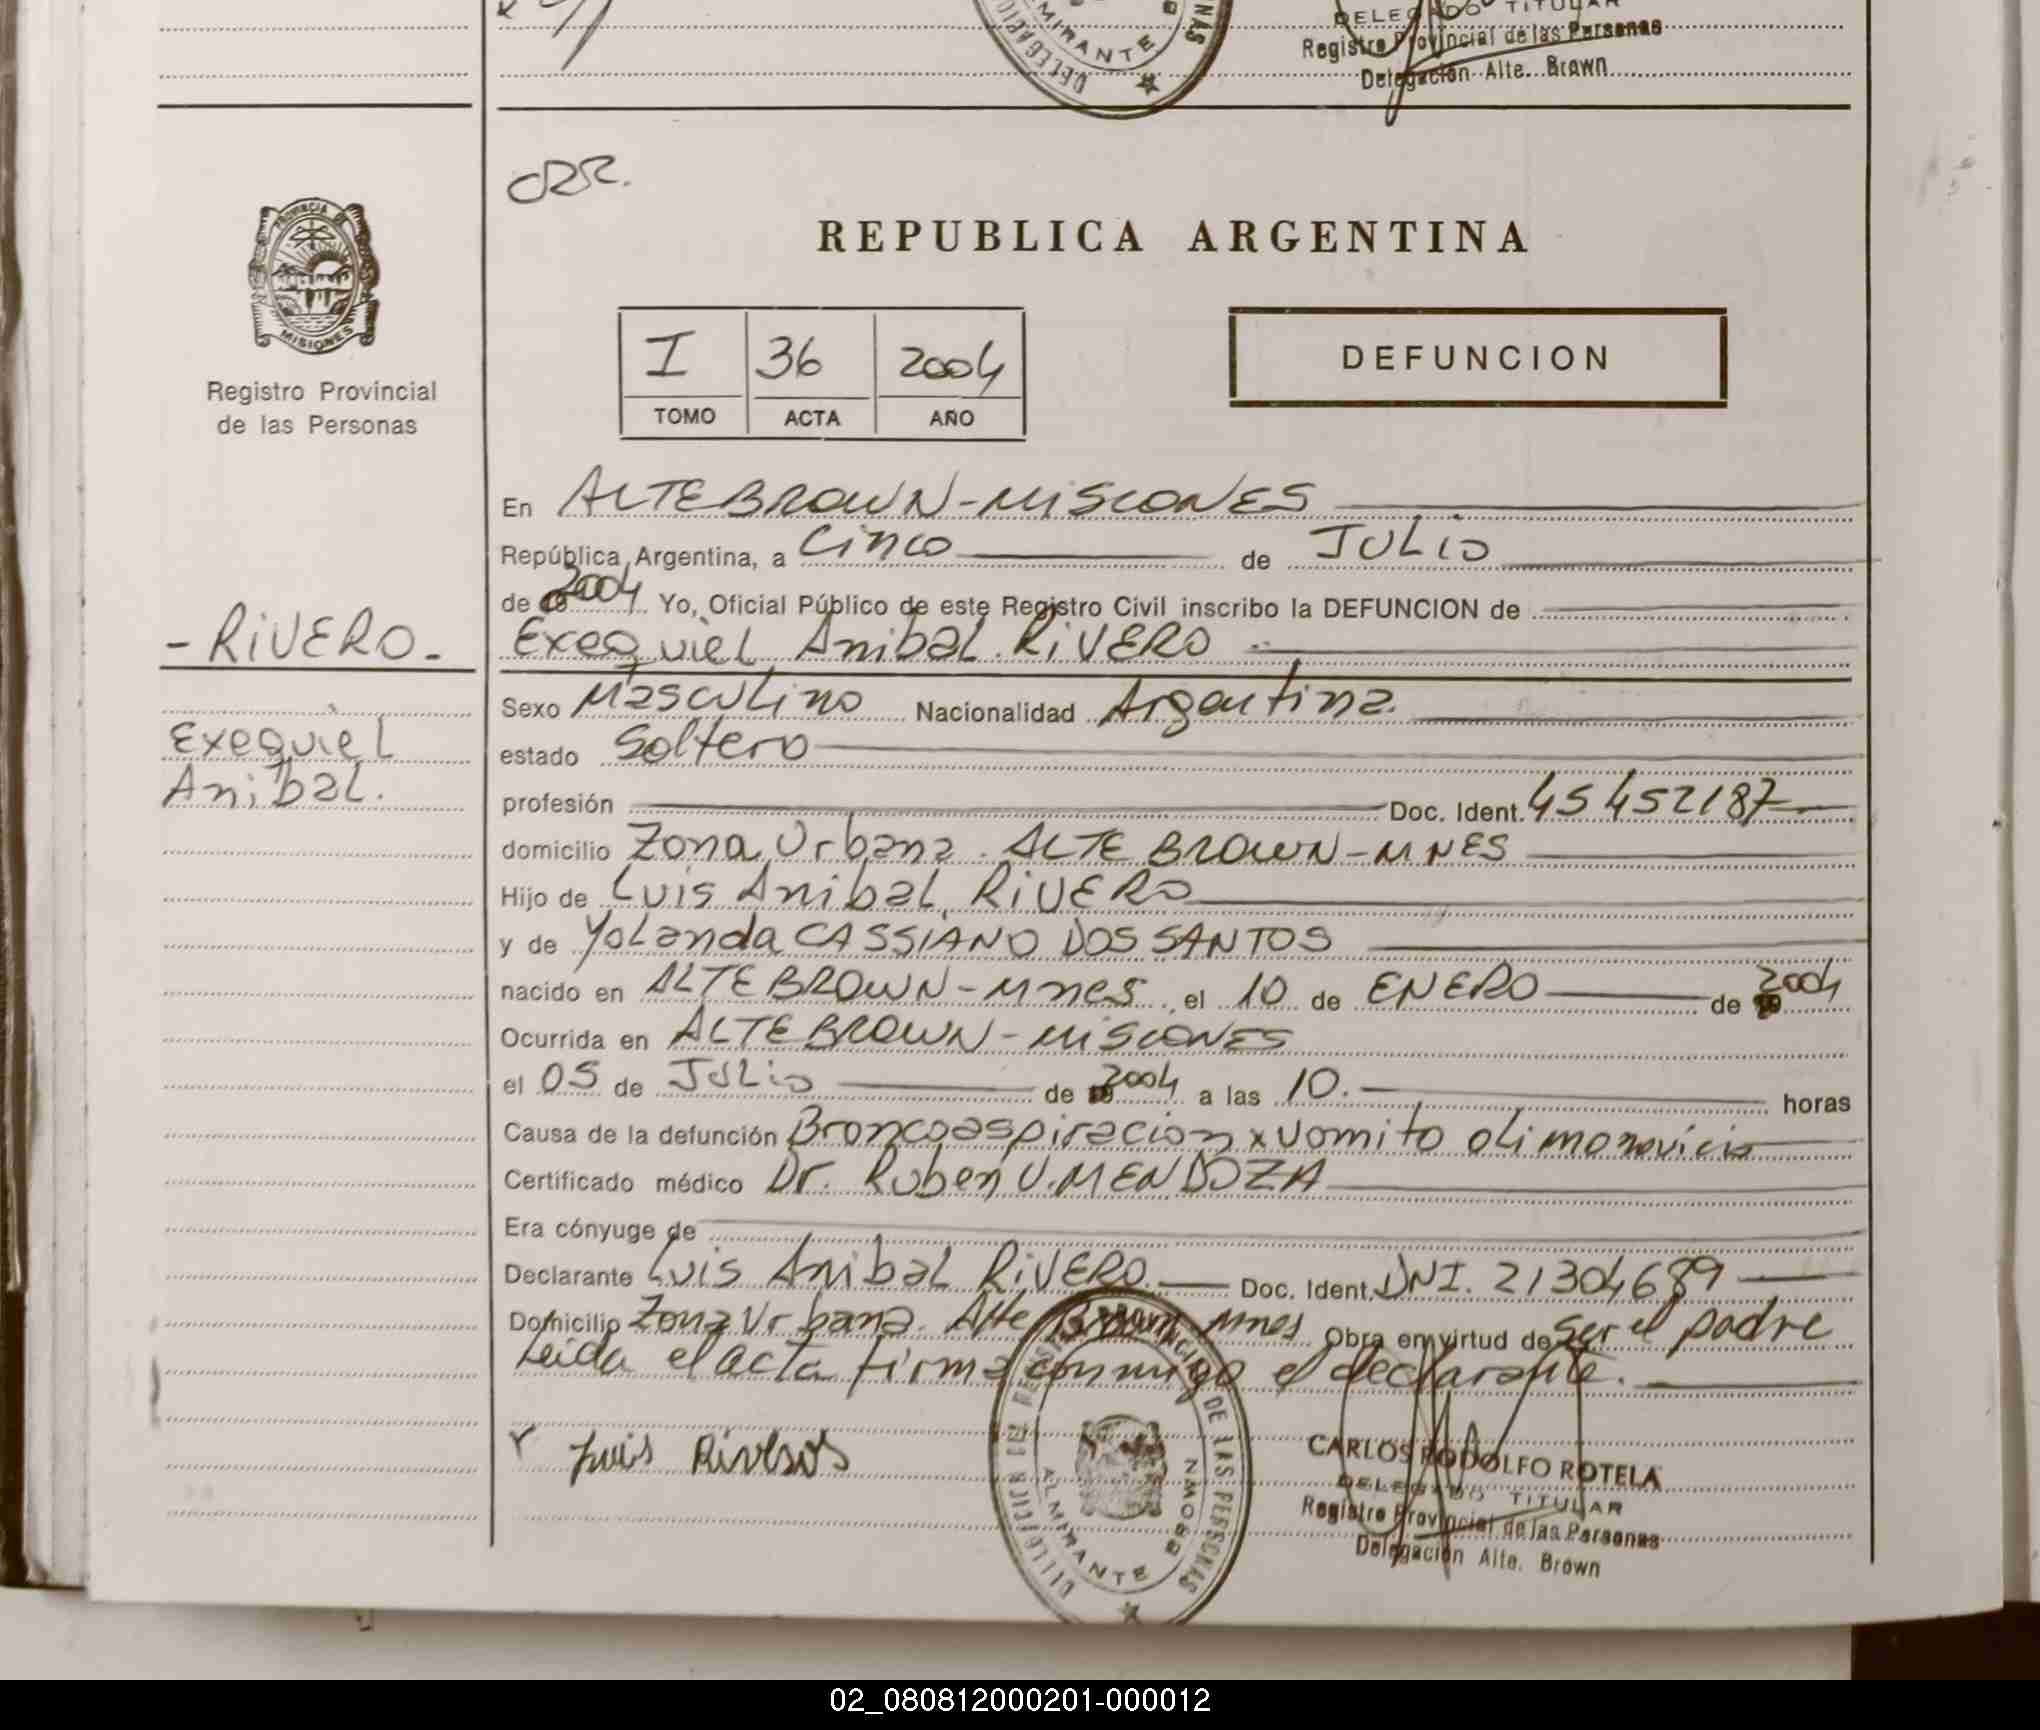 DELEGADO TITULAR
Registro Provincial de las Personas
Delegación Alte. Brown
ALMIRANTE
REPUBLICA ARGENTINA
PROVINCIA DE
MISIONES
Registro Provincial
de las Personas
I 36 2004
TOMO ACTA AÑO
DEFUNCION
En ALTE BROWN-MISIONES
República Argentina, a Cinco de JULio
de 2004 Yo, Oficial Público de este Registro Civil inscribo la DEFUNCION de
-RIVERO-
Exequiel Anibal RIVERO
Sexo Masculino Nacionalidad Argentina.
Exequiel
Anibal.
estado Soltero
profesión Doc. Ident. 45452187
domicilio Zona Urbana. ALTE BROWN-MNES
Hijo de Luis Anibal RIVERO
y de Yolanda CASSIANO DOS SANTOS
nacido en ALTE BROWN-Mnes, el 10 de ENERO de 2004
Ocurrida en ALTE BROWN-MISIONES
el 05 de JULio de 2004 a las 10. horas
Causa de la defunción Broncoaspiracion x vomito
Certificado médico Dr. Ruben U. MENDOZA
Era cónyuge de
Declarante Luis Anibal RIVERO. Doc. Ident. DNI. 21304689
Domicilio Zona Urbana. Alte Brown Mnes Obra en virtud de Ser el padre
Leida el acta firma conmigo el declarante.
Luis
CARLOS RODOLFO ROTELA
DELEGADO TITULAR
Registro Provincial de las Personas
Delegación Alte. Brown
DE LAS PERSONAS
ALMIRANTE BROWN
02_080812000201-000012